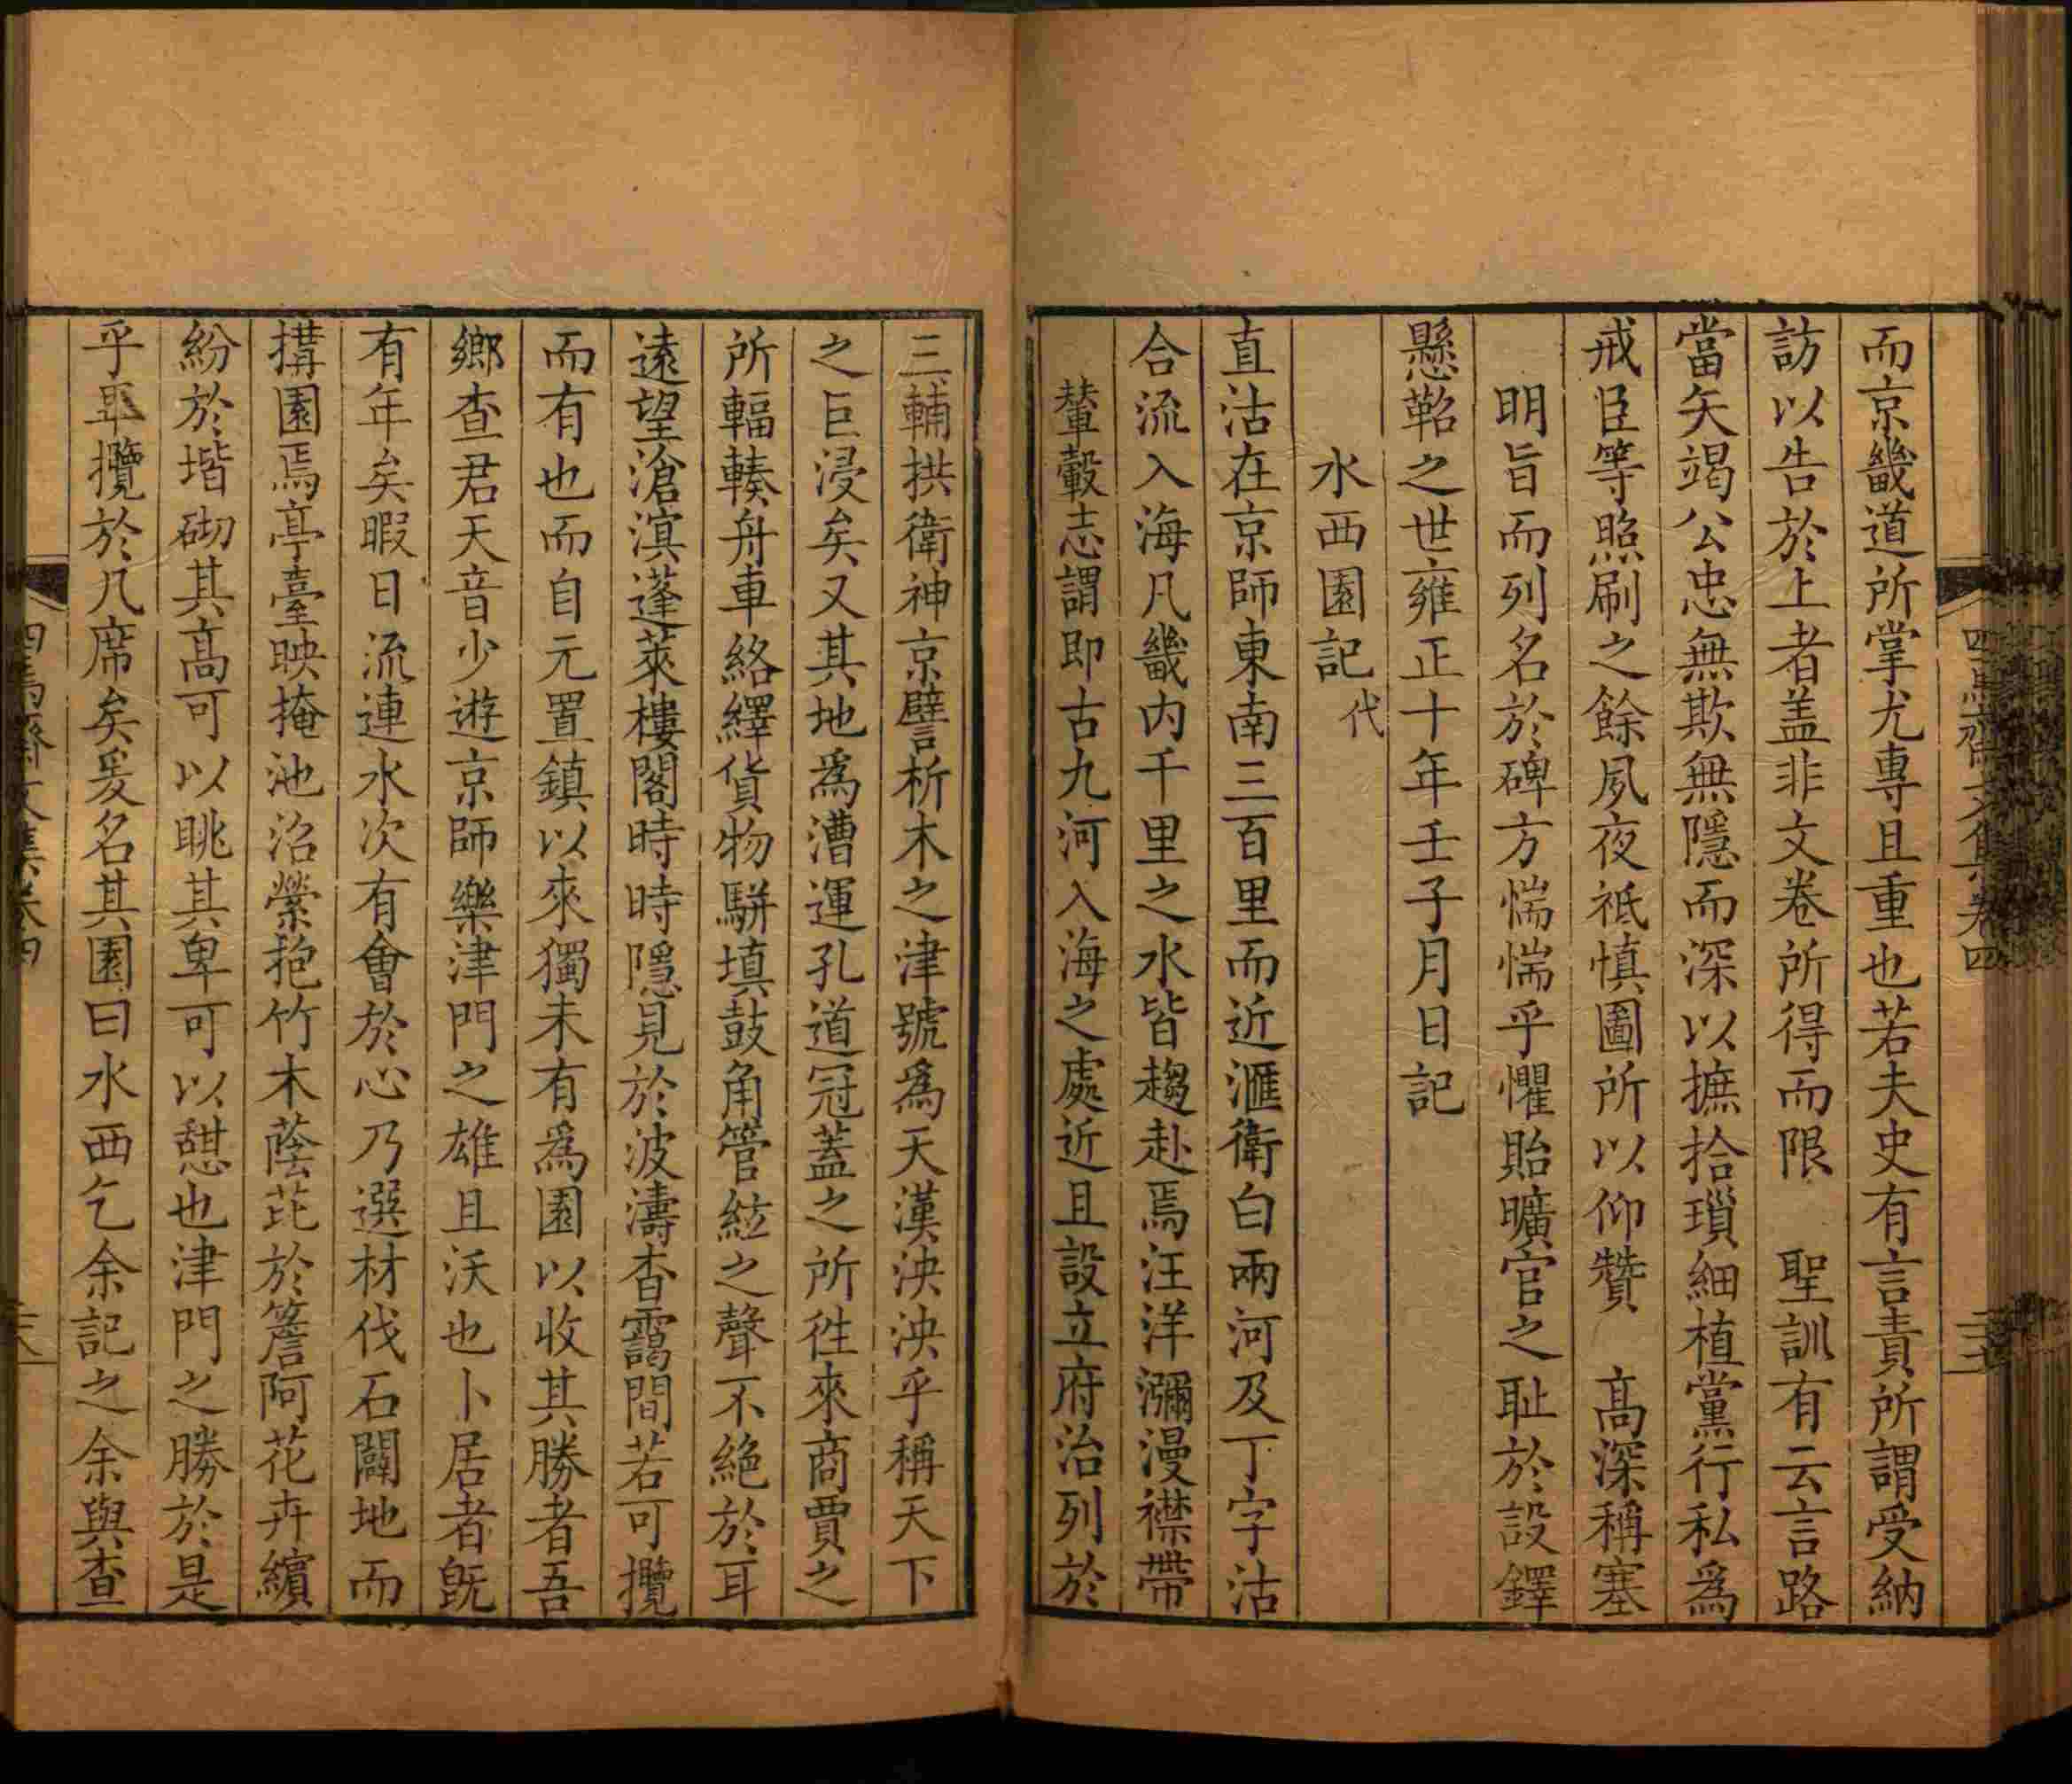 而京畿道所掌尤專且重也若夫史有言責所謂受納
訪以告於上者盖非文卷所得而限　聖訓有云言路
當矢竭公忠無欺無隱而深以摭拾瑣細植黨行私爲
戒臣等照刷之餘夙夜祗慎圖所以仰贊　高深稱塞
明旨而列名於碑方惴惴乎懼貽曠官之耻於設鐸
懸鞀之世雍正十年壬子月日記
水西園記代
直沽在京師東南三百里而近滙衛白兩河及丁字沽
合流入海凡畿内千里之水皆趨赴焉汪洋瀰漫襟帶
輦轂志謂即古九河入海之處近且設立府治列於
三輔拱衛神京譬析木之津號爲天漢泱泱乎稱天下
之巨浸矣又其地爲漕運孔道冠蓋之所徃來商賈之
所輻輳舟車絡繹貨物駢填鼓角管絃之聲不絶於耳
遠望滄溟蓬萊樓閣時時隱見於波濤杳靄間若可攬
而有也而自元置鎮以來獨未有爲園以收其勝者吾
鄉查君天音少遊京師樂津門之雄且沃也卜居者旣
有年矣暇日流連水次有會於心乃選材伐石闢地而
搆園焉亭臺映掩池沼縈抱竹木蔭芘於簷阿花卉繽
紛於堦砌其高可以眺其卑可以憇也津門之勝於是
乎畢攬於几席矣爰名其園曰水西乞余記之余與查
四焉齋文集卷四
四焉齋文集卷四